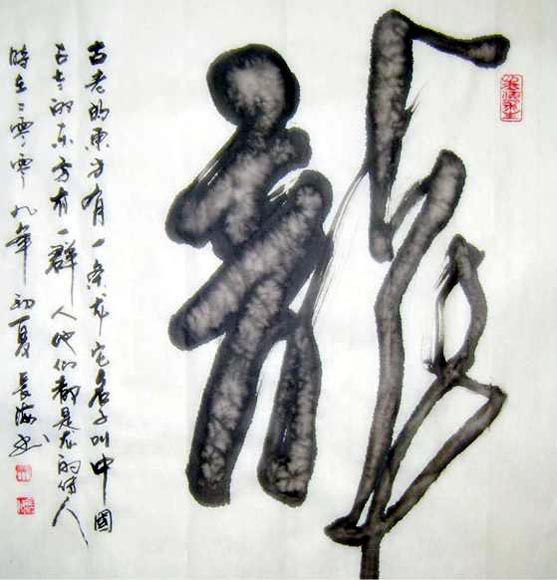 龍
古老的東方有一条龙它名子叫中國
古老的东方有一群人他们都是龙的传人
時在二零零九年初夏長海书